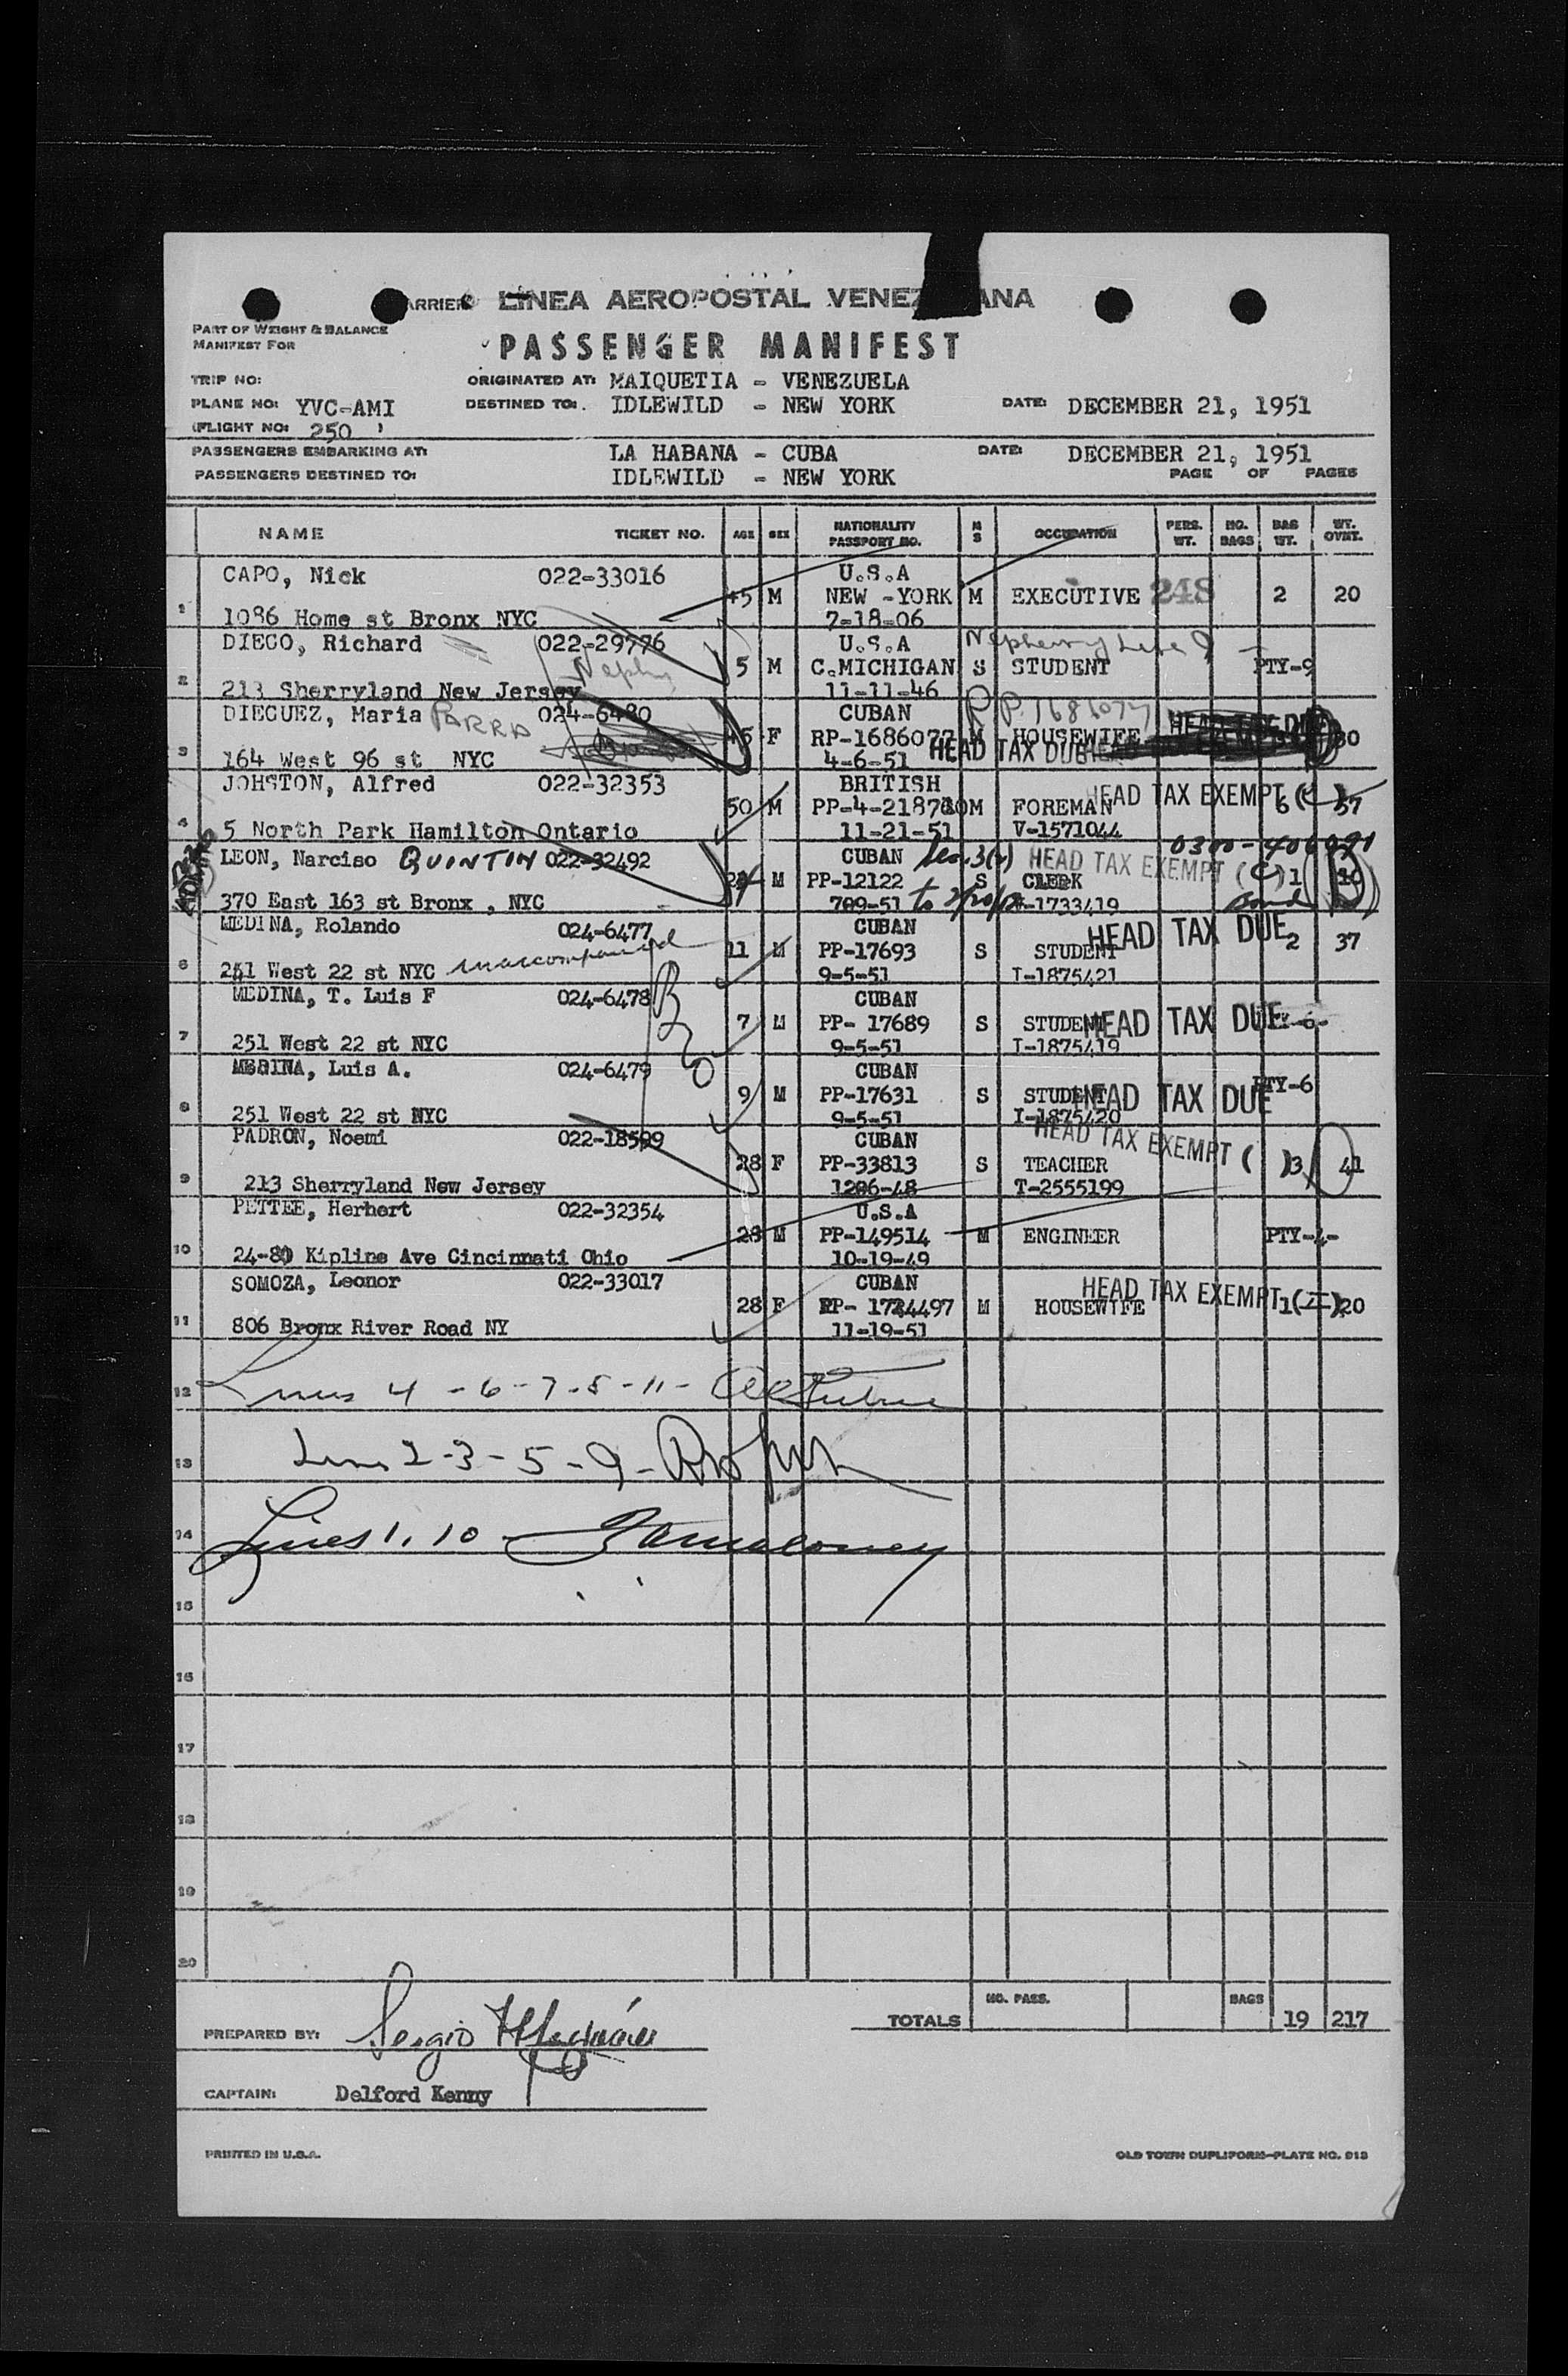 CARRIER LINEA AEROPOSTAL VENEZ ANA
PART OF WEIGHT & BALANCE
MANIFEST FOR
PASSENGER MANIFEST
TRIP NO: ORIGINATED AT: MAIQUETIA - VENEZUELA
PLANE NO: YVC-AMI DESTINED TO: IDLEWILD - NEW YORK DATE: DECEMBER 21, 1951
(FLIGHT NO: 250 )
PASSENGERS EMBARKING AT: LA HABANA - CUBA DATE: DECEMBER 21, 1951
PASSENGERS DESTINED TO: IDLEWILD - NEW YORK PAGE OF PAGES
NAME TICKET NO. AGE SEX NATIONALITY PASSPORT NO. M S OCCUPATION PERS. WT. NO. BAGS BAG WT. WT. OVNT.
CAPO, Nick 022-33016 U.S.A
1 45 M NEW -YORK M EXECUTIVE 248 2 20
1086 Home st Bronx NYC 7-18-06
DIEGO, Richard 022-29776 U.S.A
2 5 M C.MICHIGAN S STUDENT PTY-9
213 Sherryland New Jersey 11-11-46
DIEGUEZ, Maria PARRA 024-6480 CUBAN R.P. 1686077
3 45 F RP-1686077 M HOUSEWIFE HEAD TAX DUE 30
164 West 96 st NYC 4-6-51 HEAD TAX DUE
JOHSTON, Alfred 022-32353 BRITISH HEAD TAX EXEMPT (C)
4 50 M M FOREMAN 6 57
5 North Park Hamilton Ontario 11-21-51 V-1571044
LEON, Narciso QUINTIN 022-32492 CUBAN HEAD TAX EXEMPT (C)
M PP-12122 S CLERK 1
370 East 163 st Bronx , NYC 709-51 -1733419
MEDINA, Rolando 024-6477 CUBAN HEAD TAX DUE
6 unaccompanied 11 M PP-17693 S STUDENT 2 37
251 West 22 st NYC 9-5-51 I-1875421
MEDINA, T. Luis F 024-6478 CUBAN
7 7 M PP- 17689 S STUDENT HEAD TAX DUE -6-
251 West 22 st NYC 9-5-51 I-1875419
MEDINA, Luis A. 024-6479 CUBAN
8 9 M PP-17631 S STUDENT HEAD TAX DUE PTY-6
251 West 22 st NYC 9-5-51 I-1875420
PADRON, Noemi 022-18599 CUBAN HEAD TAX EXEMPT ( )
9 28 F PP-33813 S TEACHER 3 41
213 Sherryland New Jersey 1206-48 T-2555199
PETTEE, Herbert 022-32354 U.S.A
10 28 M PP-149514 M ENGINEER PTY-4-
24-80 Kipline Ave Cincinnati Ohio 10-19-49
SOMOZA, Leonor 022-33017 CUBAN HEAD TAX EXEMPT
11 28 F M HOUSEWIFE 1 20
806 Bronx River Road NY 11-19-51
12 Lines 4 - 6 - 7 - 8 - 11 -
13 Lines 2 - 3 - 5 - 9 -
14 Lines 1, 10 -
15
16
17
18
19
20
TOTALS NO. PASS. BAGS 19 217
PREPARED BY: Sergio
CAPTAIN: Delford Kenny
PRINTED IN U.S.A. OLD TOWN DUPLIFORM-PLATE NO. 913